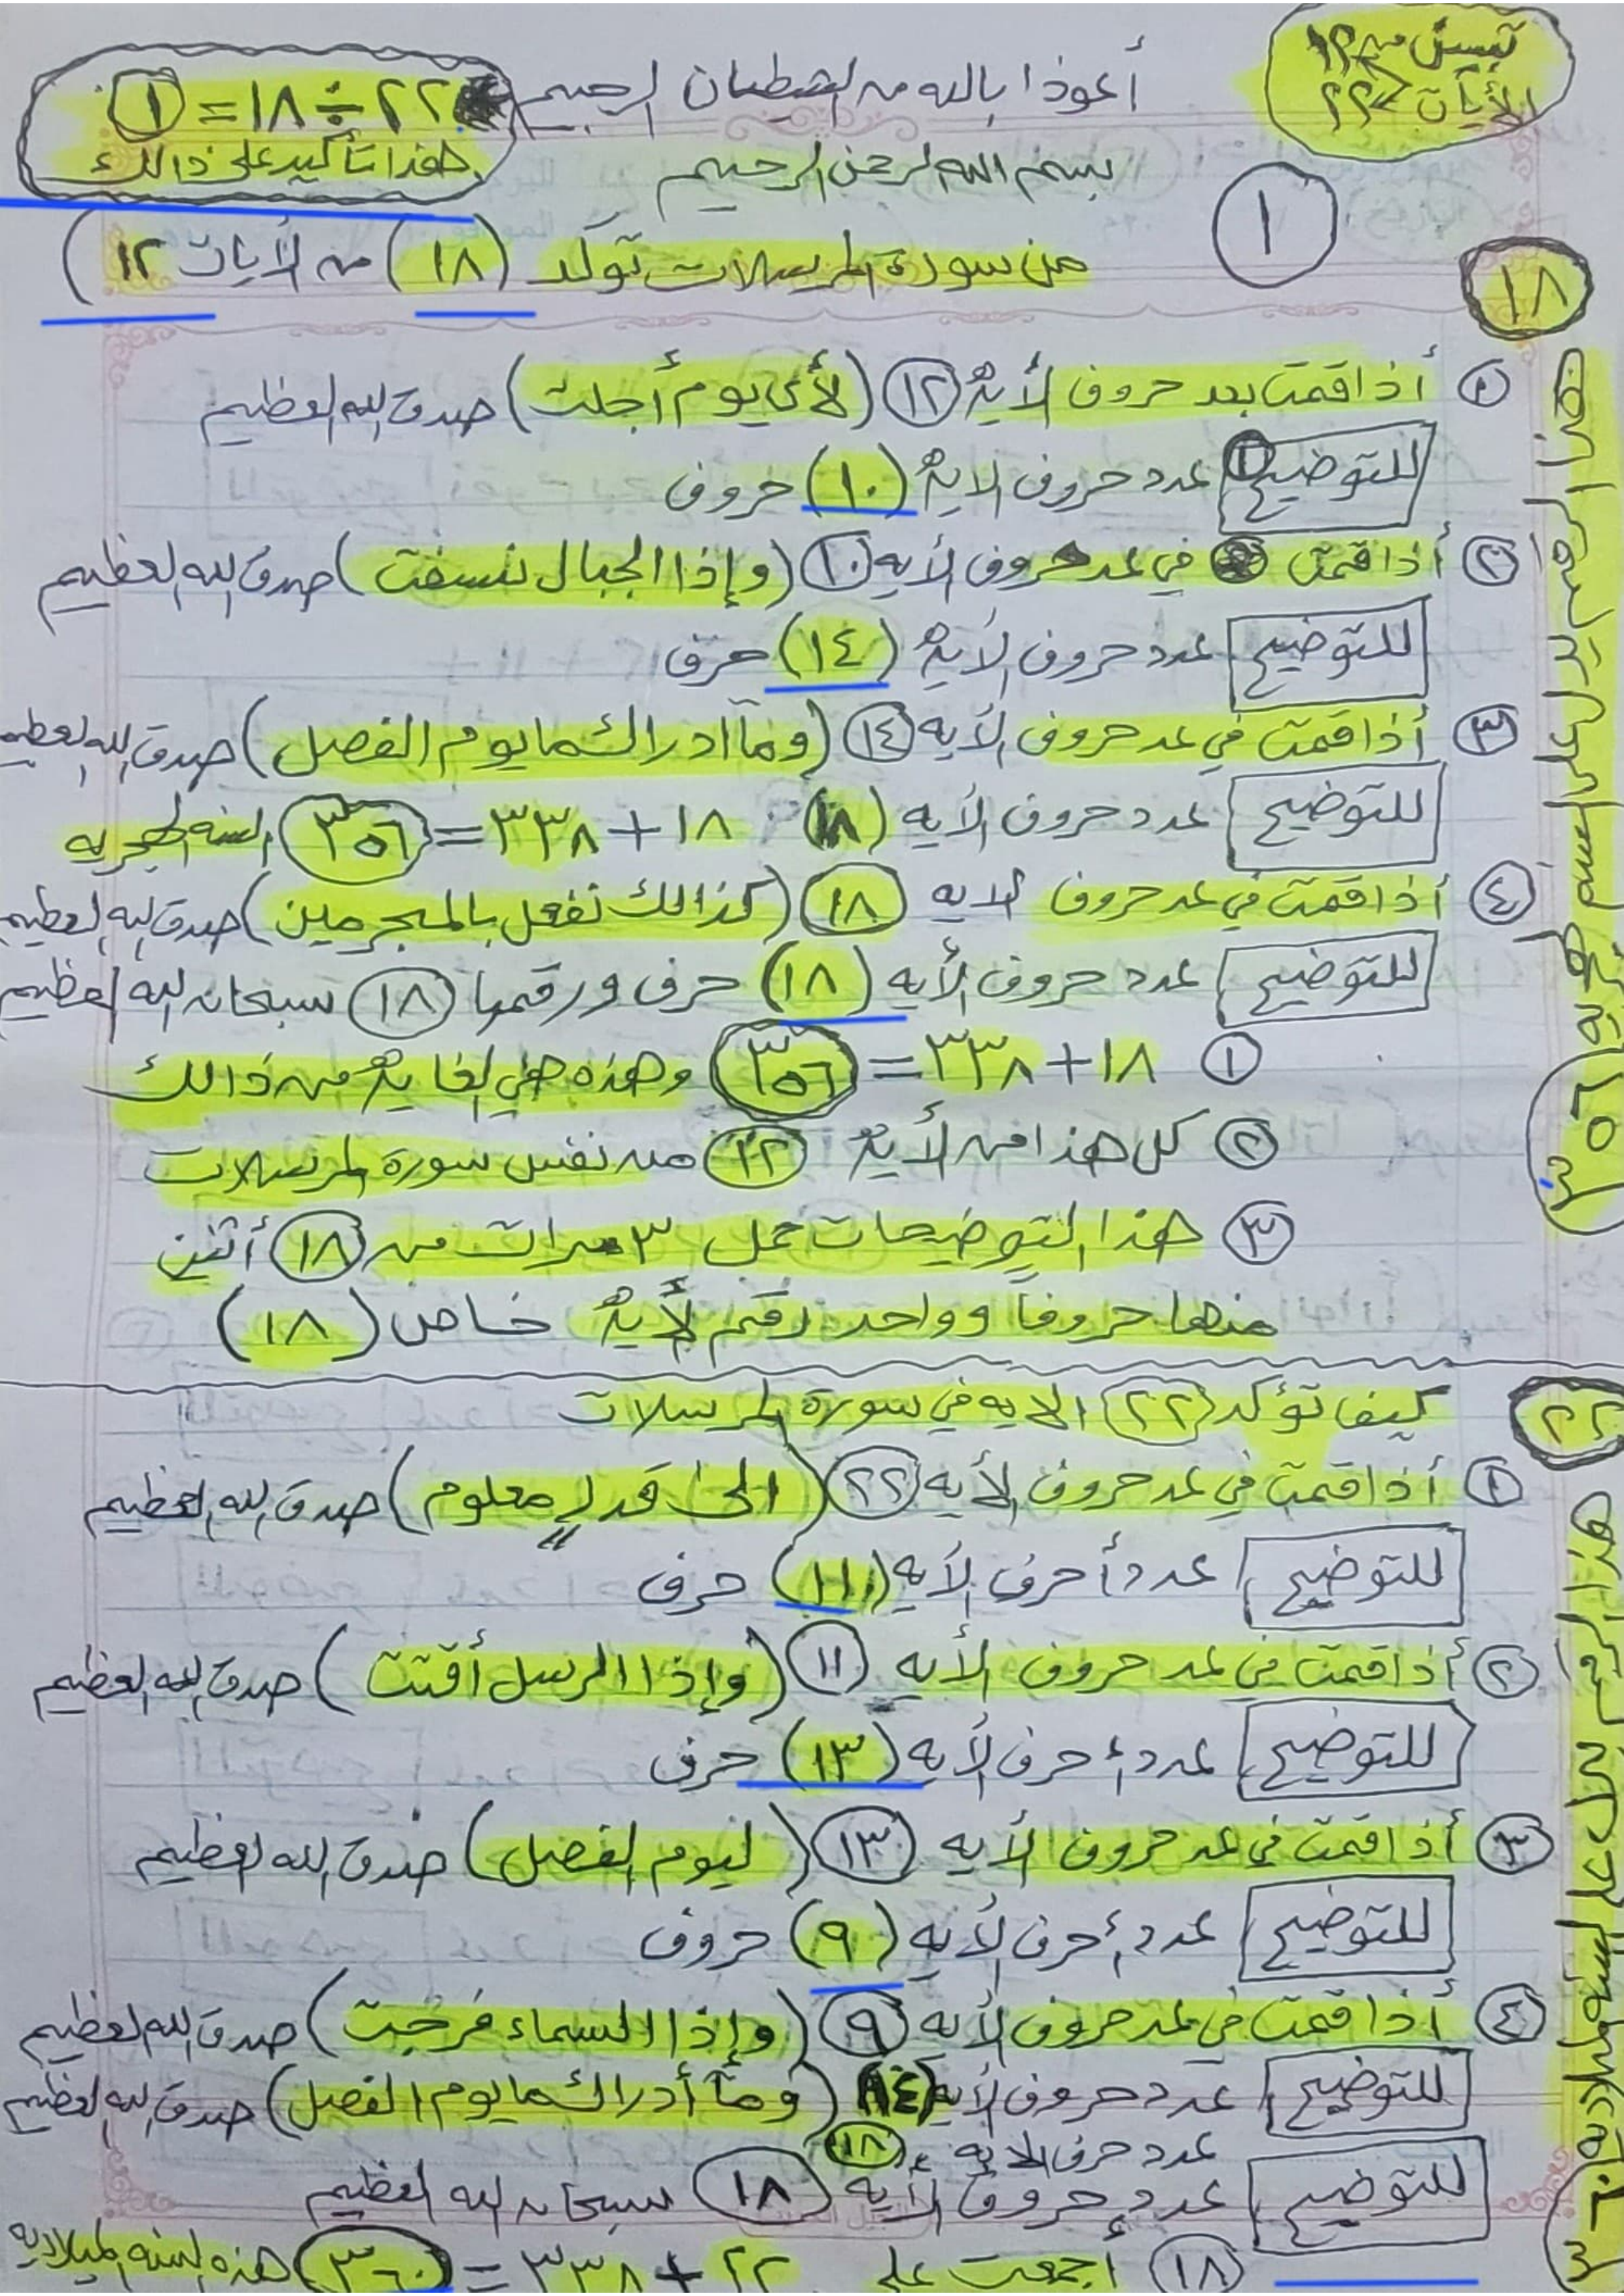 تبين من ١٢
الأيات > ٢٢
أعوذا بالله من الشيطان الرجيم
٢٢ ÷ ١٨ = ١
هذا تأكيد على ذالك
بسم الله الرحمن الرحيم
١
من سورة المرسلات توكد (١٨) من الأيات ١٢)
١٨
هذا الرقم يدل على السنه الهجريه ٣٥٦
١ أذا قمت بعد حروف الأية ١٢ (لأي يوم أجلت) صدق الله العظيم
للتوضيح عدد حروف الاية (١٠) حروف
٢ أذا قمت في عد حروف الأيه ١٠ (وإذا الجبال نسفت) صدق الله العظيم
للتوضيح عدد حروف الأية (١٤) حرف
٣ أذا قمت في عد حروف الأيه ١٤ (وما أدراك ما يوم الفصل) صدق الله العظيم
للتوضيح عدد حروف الأيه (١٨) ١٨ + ٣٣٨ = ٣٥٦ السنه الهجريه
٤ أذا قمت في عد حروف الايه ١٨ (كذالك نفعل بالمجرمين) صدق الله العظيم
للتوضيح عدد حروف الأيه (١٨) حرف ورقمها ١٨ سبحان الله العظيم
١ ١٨ + ٣٣٨ = ٣٥٦ وهذه هي الغاية من ذالك
٢ كل هذا من الأية ١٢ من نفس سورة المرسلات
٣ هذا التوضيحات تحمل ٣ مرات من ١٨ أثنين
منها حروفاً وواحد رقم الأية خاص (١٨)
٢٢
كيف تؤكد ٢٢ الايه في سورة المرسلات
هذا الرقم يدل على السنه الميلاديه ٣٦٠
١ أذا قمت في عد حروف الأيه ٢٢ (الى قدرٍ معلوم) صدق الله العظيم
للتوضيح عدد أحرف الأيه (١١) حرف
٢ أذا قمت في عد حروف الأيه ١١ (وإذا الرسل أقتت) صدق الله العظيم
للتوضيح عدد أحرف الأيه (١٣) حرف
٣ أذا قمت في عد حروف الأيه ١٣ (ليوم الفصل) صدق الله العظيم
للتوضيح عدد أحرف الأيه (٩) حروف
٤ أذا قمت في عد حروف الأيه ٩ (وإذا السماء فرجت) صدق الله العظيم
للتوضيح عدد حروف الأيه ١٤ (وما أدراك ما يوم الفصل) صدق الله العظيم
عدد حرف الايه ١٨
للتوضيح عدد حروف الأيه ١٨ سبحان الله العظيم
١٨ أجمعت على ٢٢ + ٣٣٨ = ٣٦٠ هذه السنه الميلاديه